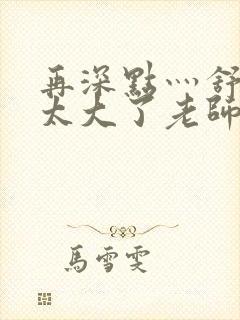 再深點灬舒
太大了老師
馬雪雯